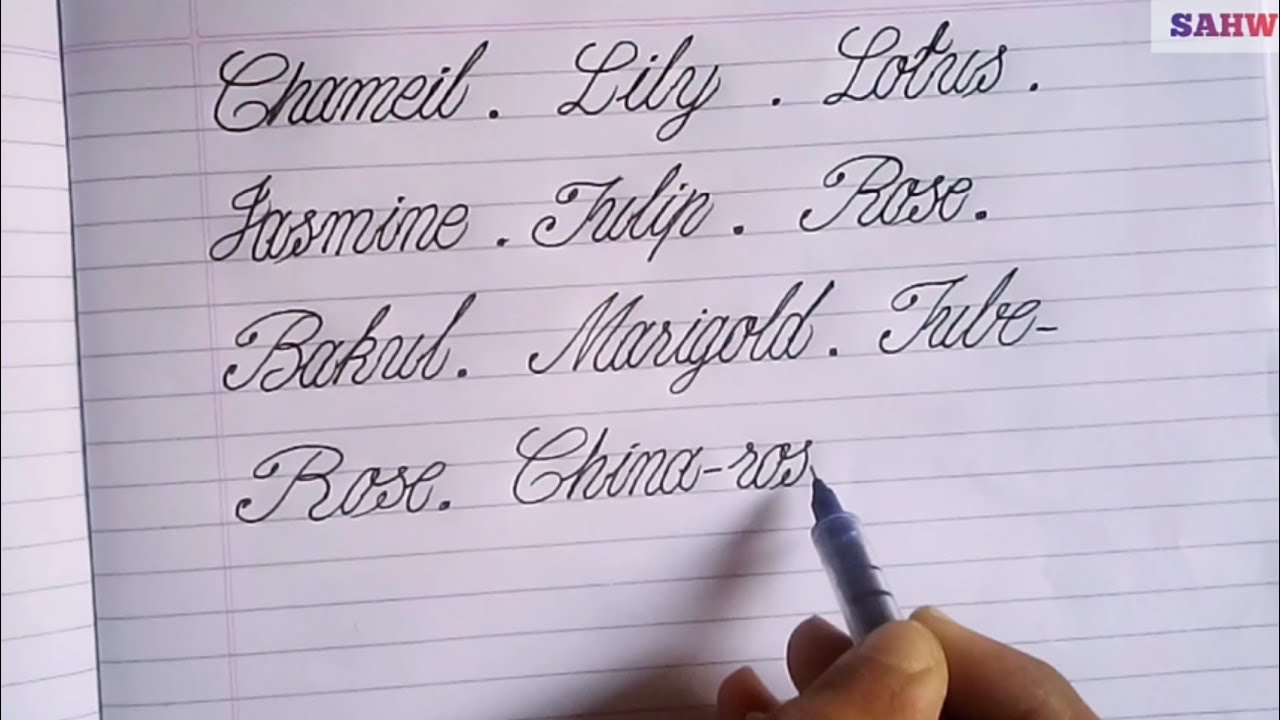 SAHW
Chameil. Lily. Lotus.
Jasmine. Tulip. Rose.
Bakul. Marigold. Tube-
Rose. China-ros